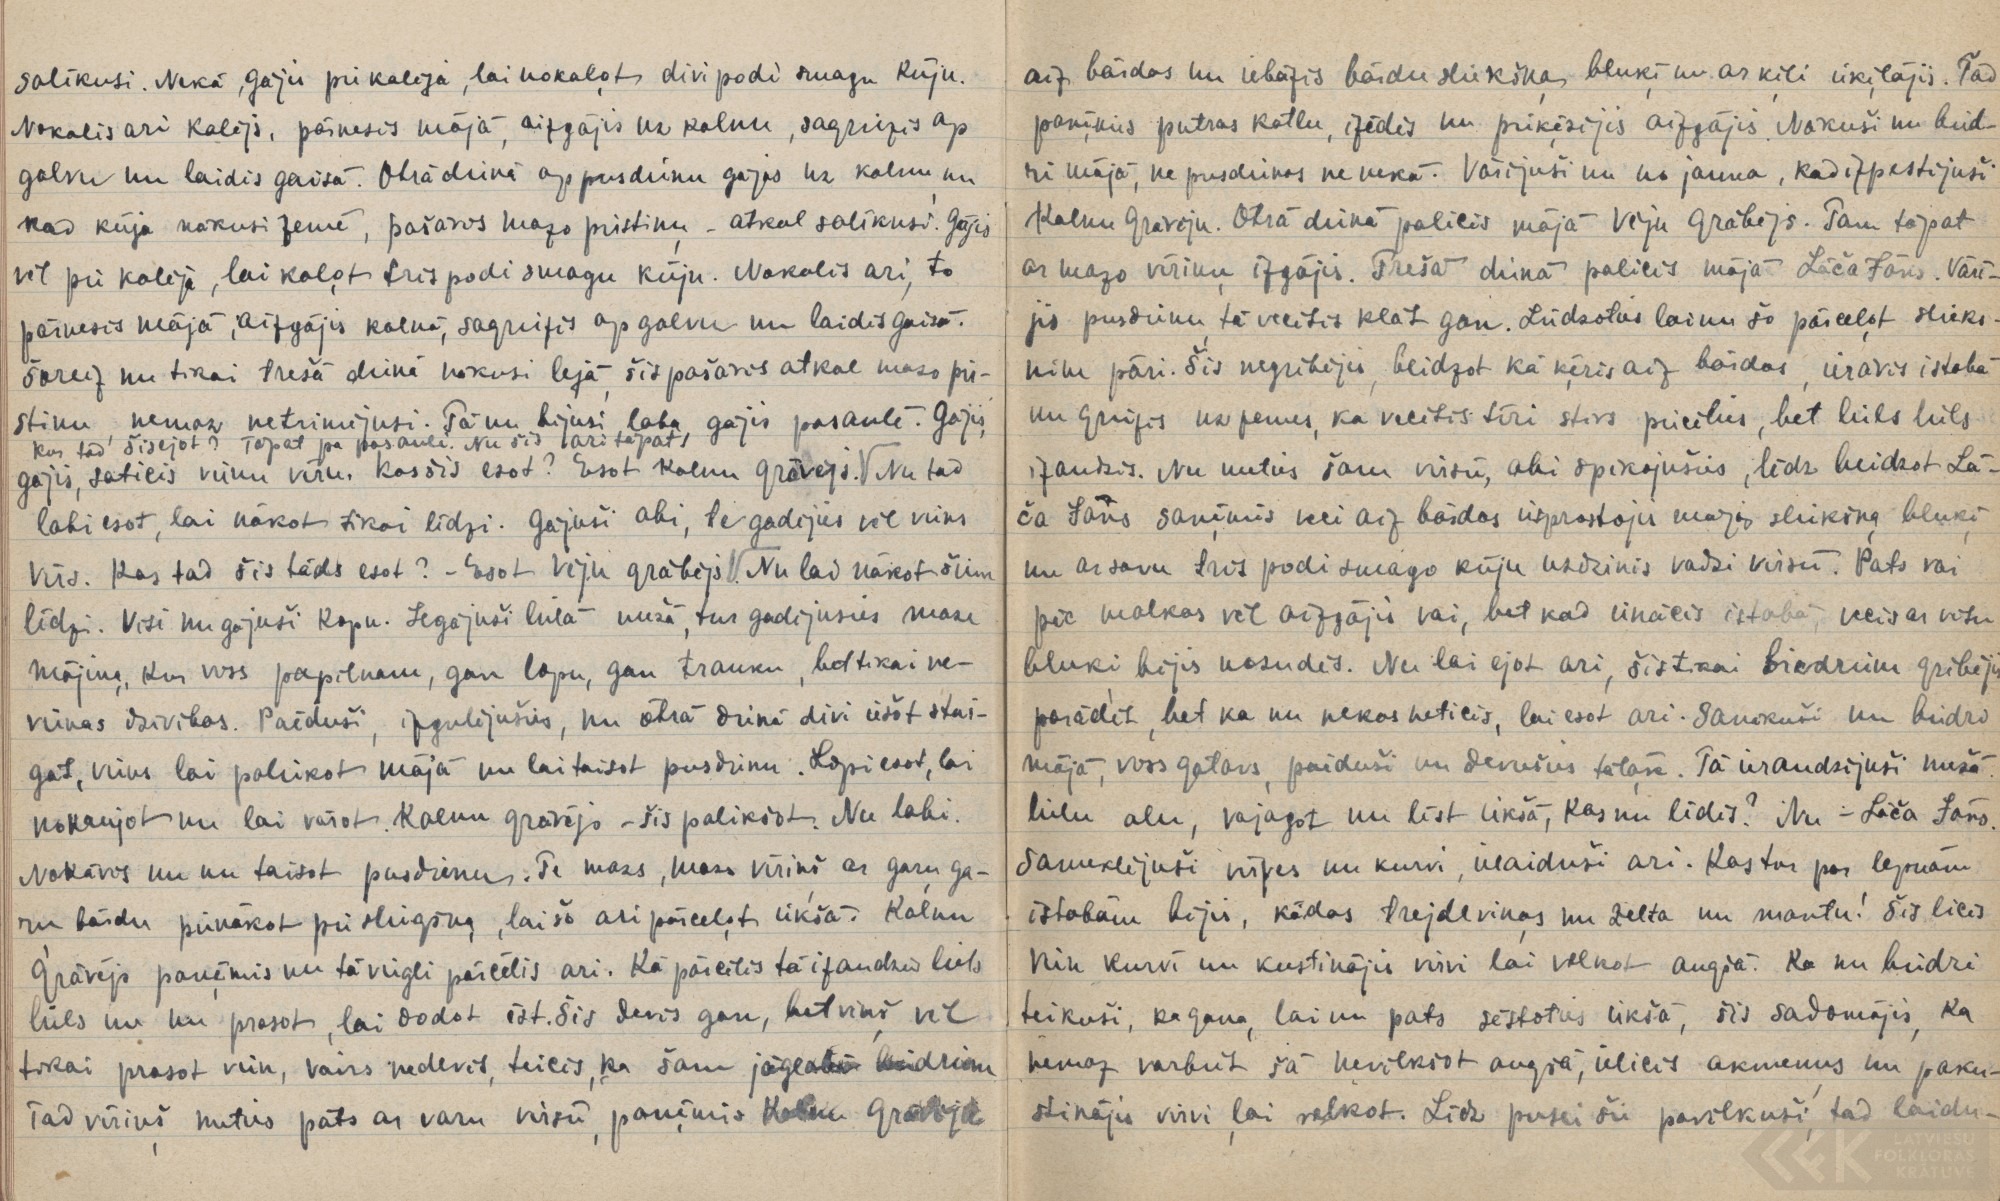 salīkusi. Nekā, gājis pi kalēja, lai nokaļot divi podi smagu kūju.
Nokalis arī kalējs, pārnesis mājā, aizgājis uz kalnu, sagriezis ap
galvu un laidis gaisā. Otrā dienā ap pusdienu gājis uz kalnu, un
kad kūja nākusi zemē, pašāvis mazo pirstiņu - atkal salīkusi. Gājis
vēl pi kalēja, lai kaļot trīs podi smagu kūju. Nokalis arī, to
pārnesis mājā, aizgājis kalnā, sagriezis ap galvu un laidis gaisā.
Šoreiz nu tikai trešā dienā nākusi lejā, šis pašāvis atkal mazo pir-
stiņu, nemaz netrīnējusi. Tā nu bijusi laba, gājis pasaulē. Gājis,
kur tad šis ejot? Tāpat pa pasauli. Nu šis arī tāpat,
gājis, saticis vienu vīru. Kas šis esot? Esot Kalnu Grāvējs. Nu tad
labi esot, lai nākot tikai līdzi. Gājuši abi, te gadījies vēl viens
vīrs. Kas tad šis tāds esot? - Esot Vēju grābējs. Nu lai nākot šiem
līdzi. Visi nu gājuši kopu. Iegājuši lielā mežā, tur gadījusies maza
mājiņa, kur viss papilnam, gan lopu, gan trauku, bet tikai ne-
vienas dzīvības. Paēduši, izgulējušies, nu otrā dienā divi iešot stai-
gāt, viens lai paliekot mājā un lai taisot pusdienu. Lopi esot, lai
nokaujot un lai vārot. Kalnu grāvējs - šis palikšot. Nu labi.
Nokāvis nu un taisot pusdienu. Te mazs, mazs vīriņš ar garu, ga-
ru bārdu pienākot pi sliegšņa, lai šo arī pārceļot iekšā. Kalnu
Grāvējs paņēmis un tā viegli pārcēlis arī. Kā pārcēlis tā izaudzis liels
liels un nu prasot, lai dodot ēst. Šis devis gan, bet viņš vēl
tikai prasot vien, vairs nedevis, teicis, ka šam jāglabā biedriem
Tad vīriņš meties pats ar varu virsū, paņēmis Kalnu Grāvēju
aiz bārdas un iebāzis bārdu sliekšņa blukī un ar ķīli ieķīlājis. Tad
paņēmis putras katlu, izēdis un piķēsījis aizgājis. Nākuši nu bied-
ri mājā, ne pusdienas ne nekā. Vārījuši nu no jauna, kad izpestījuši
Kalnu Grāvēju. Otrā dienā palicis mājā Vēju Grābējs. Tam tāpat
ar mazo vīriņu izgājis. Trešā dienā palicis mājā Lāča Jānis. Vārī-
jis pusdienu, tā vecītis klāt gan. Lūdzoties lai nu šo pārceļot slieks-
nim pāri. Šis negribējis, beidzot kā ķēris aiz bārdas, ierāvis istabā
un grūdis uz zemes, ka vecītis tīri stīvs piecēlies, bet liels liels
izaudzis. Nu meties šam virsū, abi spīkojušies, līdz beidzot Lā-
ča Jānis saņēmis veci aiz bārdas iesprostojis mazās sliekšņa blukī
un ar savu trīs podi smago kūju uzdzinis vadzi virsū. Pats vai
pēc malkas vēl aizgājis vai, bet kad ienācis istabā, vecis ar visu
bluki bijis nozudis. Nu lai ejot arī, šis tikai biedriem gribējis
parādīt, bet ka nu nekas neticis, lai esot arī. Sanākuši nu biedri
mājā, viss gatavs, paēduši un devušies tālāk. Tā ieraudzījuši mežā
lielu alu, vajagot nu līst iekšā, kas nu līdīs? Nu - Lāča Jānis.
Sameklējuši virves un kurvi, ielaiduši arī. Kas tur par lepnām
istabām bijis, kādas trejdeviņas un zelta un mantu! Šis licis
vien kurvī un kustinājis virvi lai velkot augšā. Ka nu biedri
teikuši, ka gana, lai nu pats sēstoties iekšā, šis sadomājis, ka
nemaz varbūt šā nevilkšot augšā, ielicis akmeņus un paku-
stinājis virvi lai velkot. Līdz pusei šie pavilkuši, tad laidu-
LATVIEŠU
FOLKLORAS
KRĀTUVE